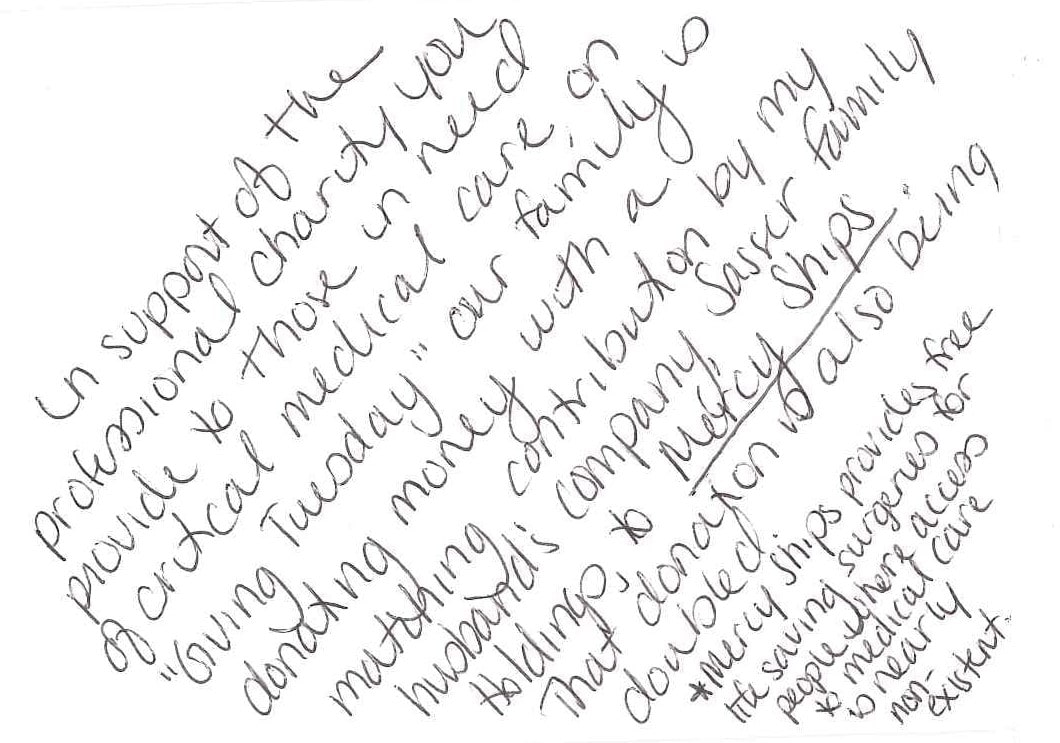 in support of the
professional charity you
provide to those in need
of critical medical care on
"Giving Tuesday" our family is
donating money with a
matching contribution by my
husband's company, Sasser family
Holdings, to Mercy Ships.
That donation is also being
doubled.
*Mercy Ships provides free
life saving surgeries for
people where access
to medical care
is nearly
non-
existent.